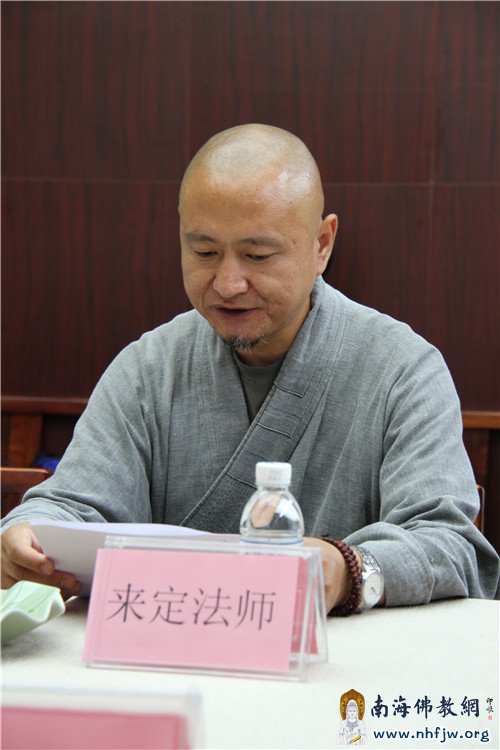 来定法师
南海佛教網
www.nhfjw.org